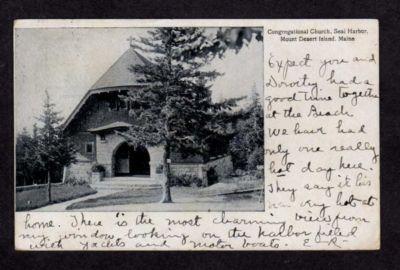 Congregational Church, Seal Harbor,
Mount Desert Island, Maine
Expect you and
Dorothy had a
good time together
at the Beach
We have had
only one really
hot day here.
They say it is
very hot at
home. There is the most charming view from
my window looking on the harbor filled
with yachts and motor boats. E. R.